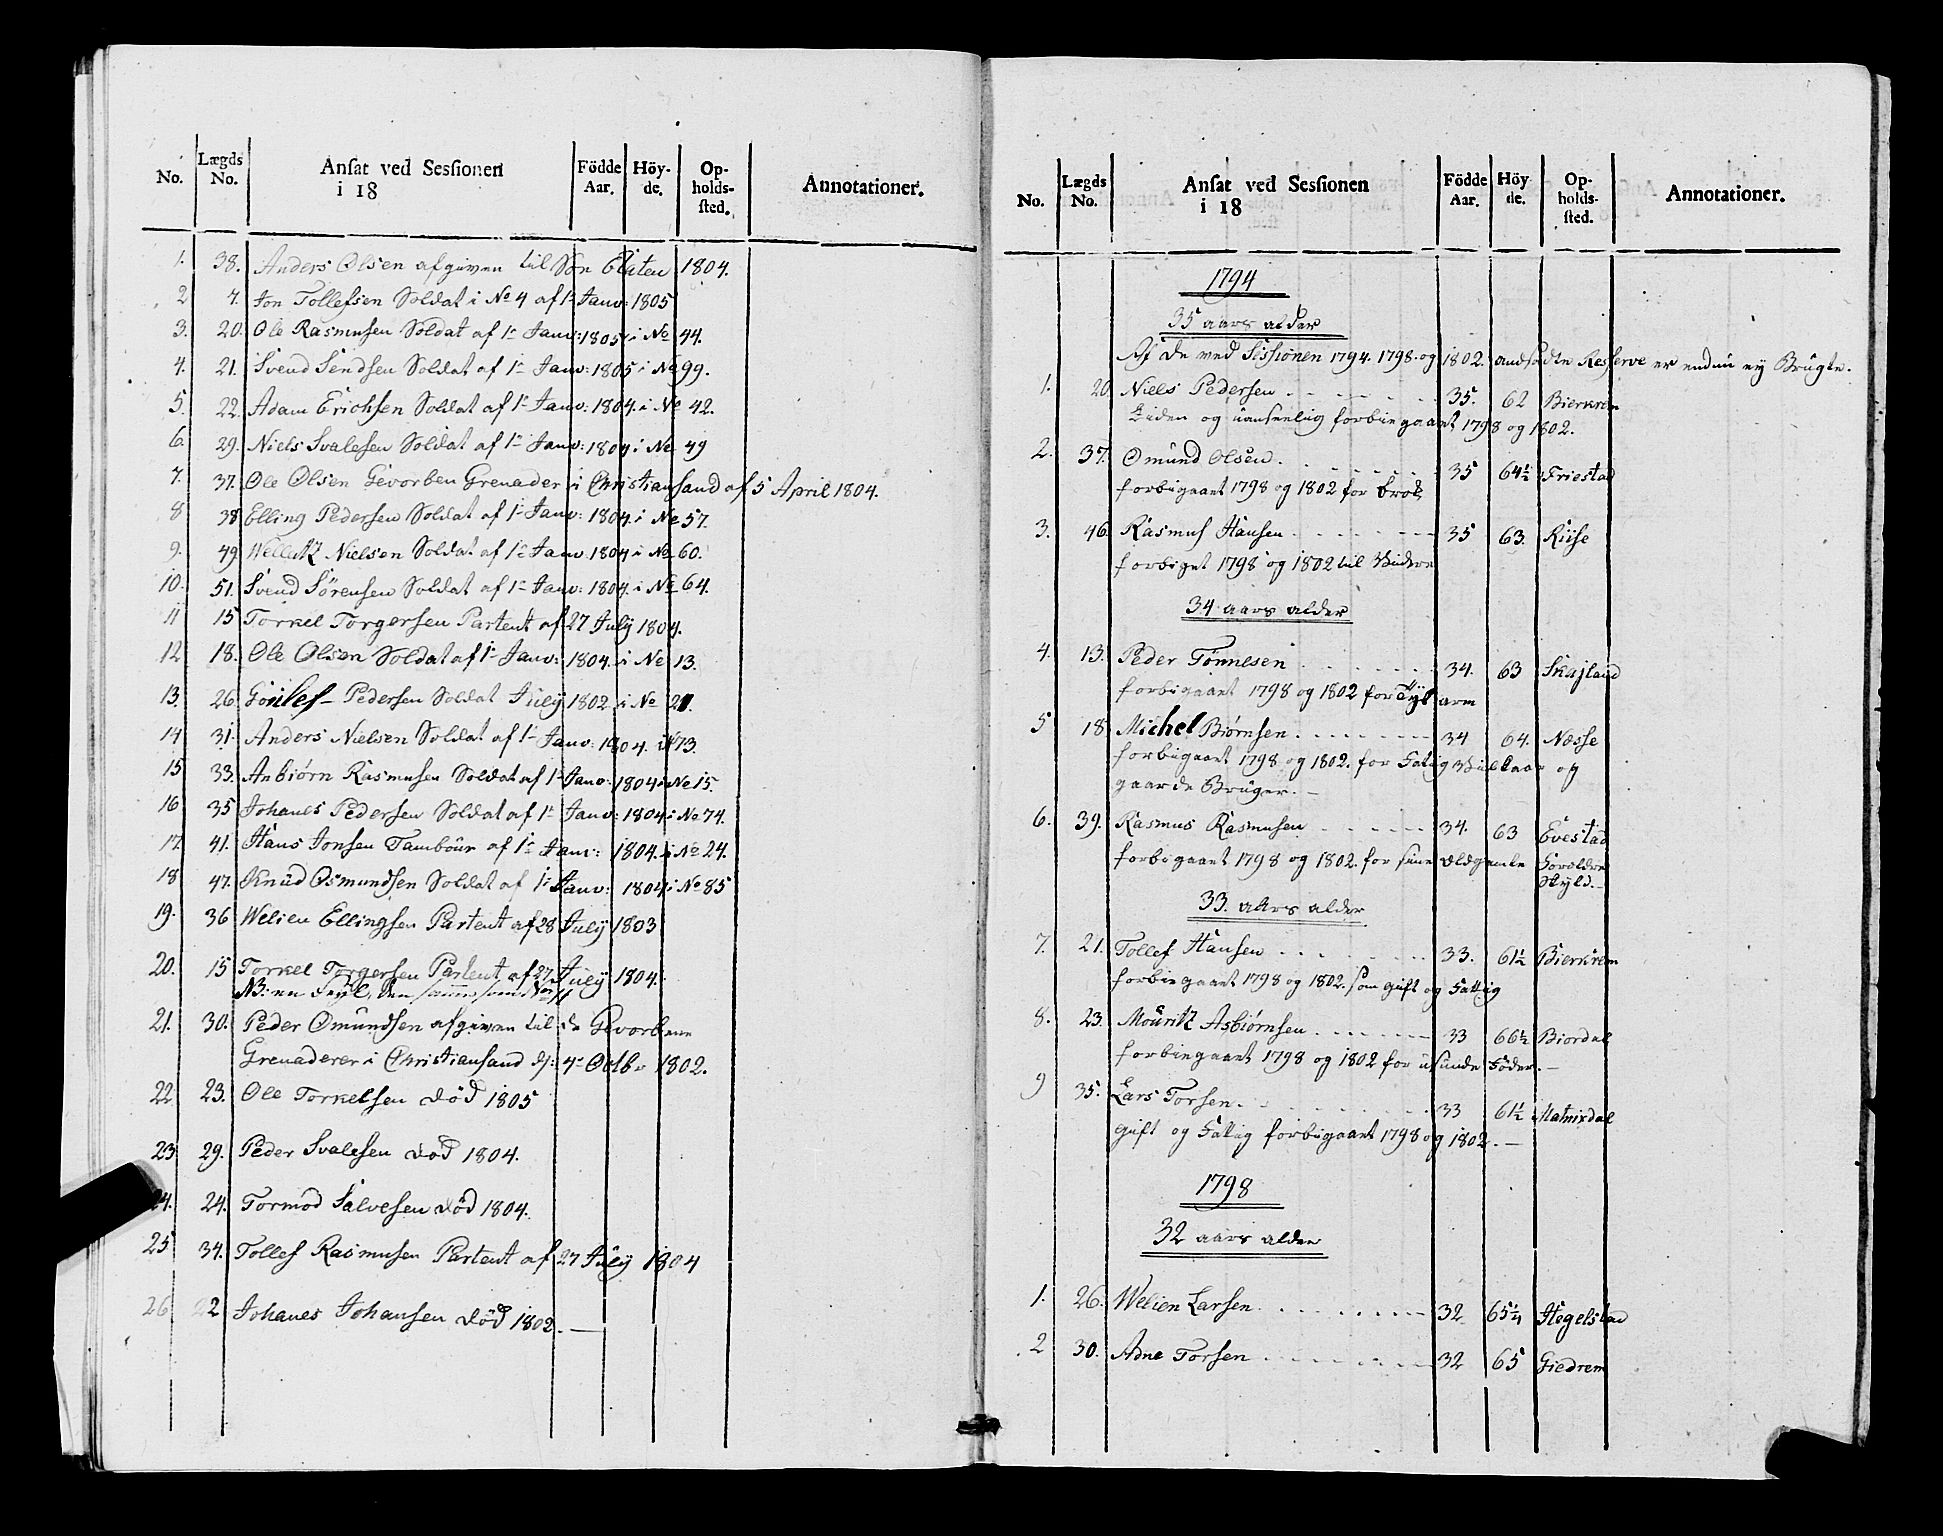 No. Lægds No. Ansat ved Sessionen i 18 Födde Aar. Höy-de. Op-holds-sted. Annotationer.
1. 38. Anders Olsen afgiven til Söe Etaten 1804.
2 7. Jon Tollefsen Soldat i No 4 af 1e Janv: 1805
3. 20. Ole Rasmusen Soldat af 1e Janv: 1805 i No 44.
4. 21. Svend Sendsen Soldat af 1e Janv: 1805 i No 99.
5. 22. Adam Erichsen Soldat af 1e Janv: 1804. i No 42.
6. 29. Niels Svalesen Soldat af 1e Janv: 1804 i No 49
7. 37. Ole Olsen Gevorben Grenader i Christiansand af 5 April 1804.
8 38 Elling Pedersen Soldat af 1e Janv: 1804. i No 57.
9. 49 Wellutz Nielsen Soldat af 1e Janv: 1804 i No 60.
10. 51. Svend Sörensen Soldat af 1e Janv: 1804. i No 64.
11 15 Torkel Torgersen Partent af 27 July 1804.
12 18. Ole Olsen Soldat af 1e Janv: 1804. i No 13.
13. 26. Gunlef Pedersen Soldat July 1802 i No 21.
14 31. Anders Nielsen Soldat af 1e Janv: 1804. i No 73.
15 33. Anbiørn Rasmusen Soldat af 1e Janv: 1804 i No 15.
16 35 Johanes Pedersen Soldat af 1e Janv: 1804 i No 74.
17. 41. Hans Jonsen Tambour af 1e Janv: 1804. i No 24.
18 47. Knud Osmundsen Soldat af 1e Janv: 1804 i No 85
19. 36 Welien Ellingsen Partent af 28 July 1803
20. 15 Torkel Torgersen Partent af 27 July 1804.
NB: en Feyl, den samme som No 11
21. 30. Peder Omundsen afgiven til de Gevorbene
Grenaderer i Christiansand d: 4e Octbr 1802.
22 23. Ole Torkelsen död 1805
23 29. Peder Svalesen död 1804.
24. 24. Tormod Salvesen död 1804.
25 34. Tollef Rasmusen Partent af 27 July 1804
26 22 Johanes Johansen död 1802. —
No. Lægds No. Ansat ved Sessionen i 18 Födde Aar. Höy de. Op-holds-sted. Annotationer.
1794
35 aars alder
Af de ved Sessionen 1794. 1798. og 1802. andsadte Reserve er endnu ey Brugte.
1. 20 Niels Pedersen 35. 62 Bierkrem
Liden og uanseelig forbiegaaet 1798 og 1802.
2. 37. Omund Olsen 35 64½ Friestad
forbigaaet 1798 og 1802 for brok
3. 46. Rasmus Hansen 35 63. Riise
forbiget 1798 og 1802 til Videre
34 aars alder
4. 13. Peder Tönnesen 34. 63 Skajland
forbigaaet 1798 og 1802 for Feyl arm
5 18 Michel Biørnsen 34 64. Nesse
forbigaaet 1798 og 1802. for Fatig Vilkaar og
gaarde Bruger. —
6. 39. Rasmus Rasmusen 34. 63 Evestad
forbigaaet 1798 og 1802. for sine ældgamle Foreldre
Skyld. —
33. aars alder
7. 21. Tollef Hansen 33. 61½ Bierkrem
forbiegaaet 1798 og 1802. som gift og Fattig
8. 23. Mouritz Asbiørnsen 33 66½ Biordal
forbiegaaet 1798 og 1802 for usunde Föder. —
9 35. Lars Torsen 33 61½ Matnisdal
gift og Fattig forbigaaet 1798 og 1802. —
1798
32 aars alder
1. 26. Welien Larsen 32 65¼ Hegelstad
2 30. Adne Torsen 32 65 Giedrem